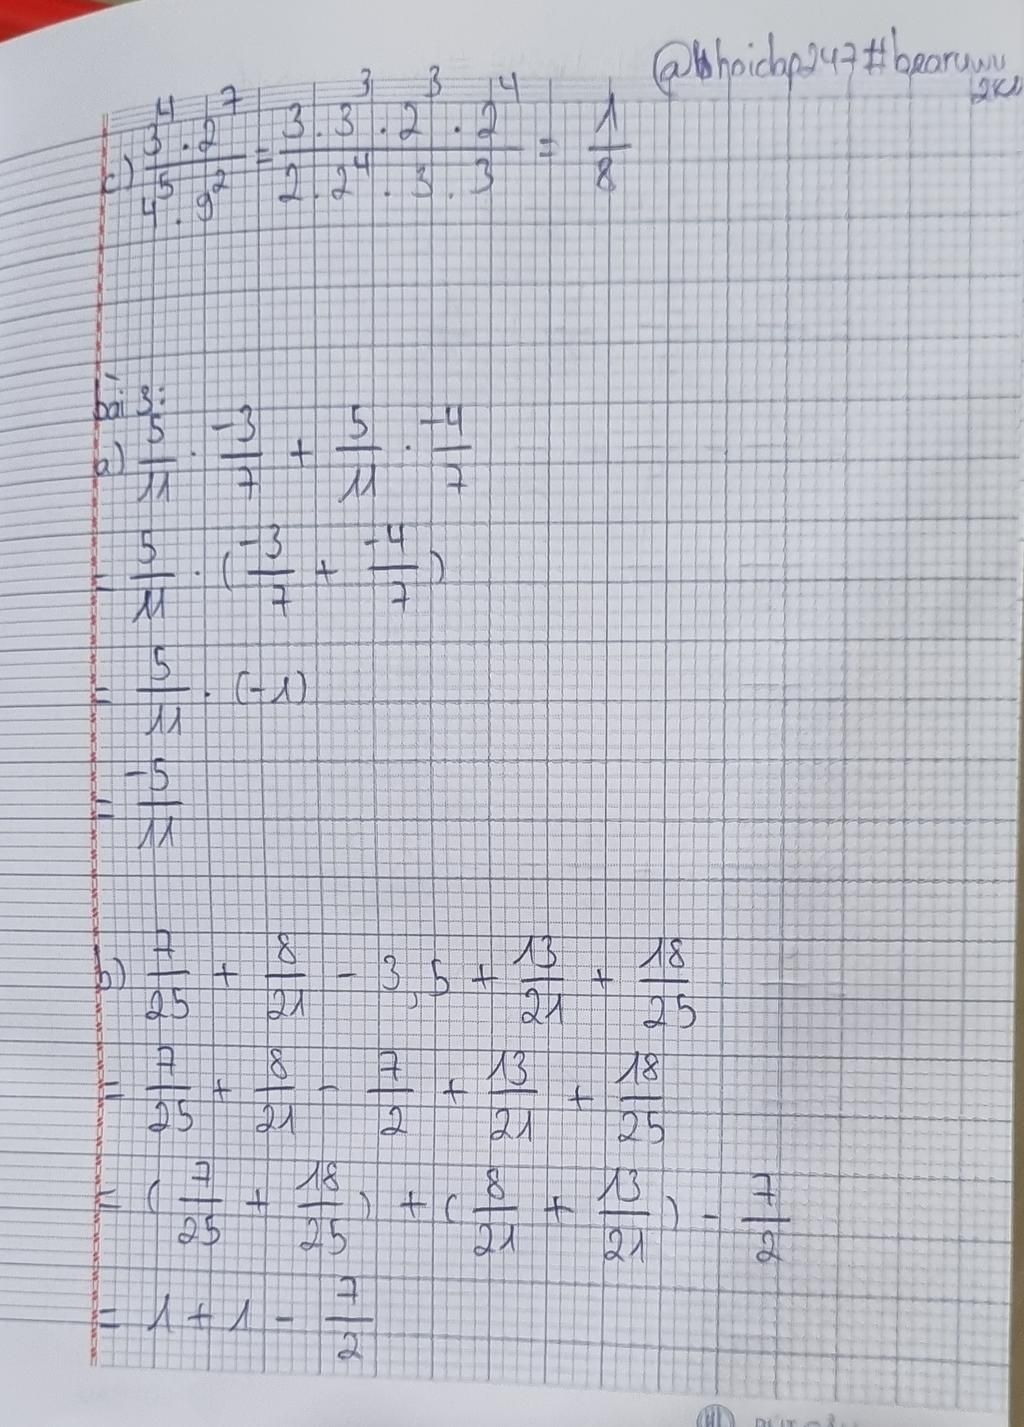 @hoidap247#bearuwu
2k11
c) 3^4 . 2^7 / 4^5 . 9^2 = 3 . 3^3 . 2^3 . 2^4 / 2 . 2^4 . 3 . 3 = 1/8
bài 3:
a) 5/11 . -3/7 + 5/11 . -4/7
= 5/11 . (-3/7 + -4/7)
= 5/11 . (-1)
= -5/11
b) 7/25 + 8/21 - 3,5 + 13/21 + 18/25
= 7/25 + 8/21 - 7/2 + 13/21 + 18/25
= (7/25 + 18/25) + (8/21 + 13/21) - 7/2
= 1 + 1 - 7/2